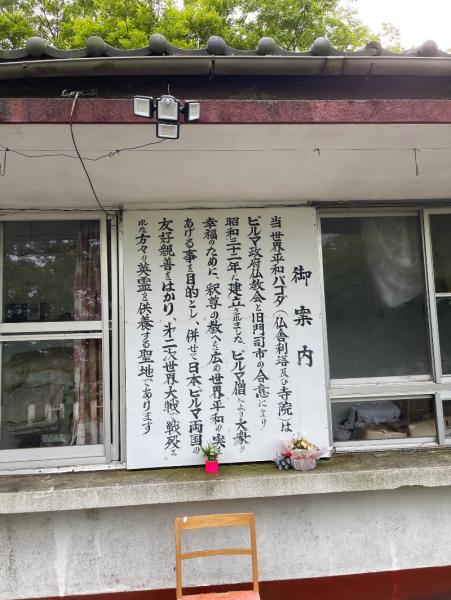 御案内
当世界平和パゴダ(仏舎利塔及び寺院)は
ビルマ政府仏教会と旧門司市の合意により
昭和三十二年に建立されました、ビルマ僧により大衆の
幸福のために、釈尊の教へを広め世界平和の実
あげる事を目的とし、併せて日本、ビルマ両国の
友好親善をはかり、才二次世界大戦で戦死さ
れた方々の英霊を供養する聖地であります